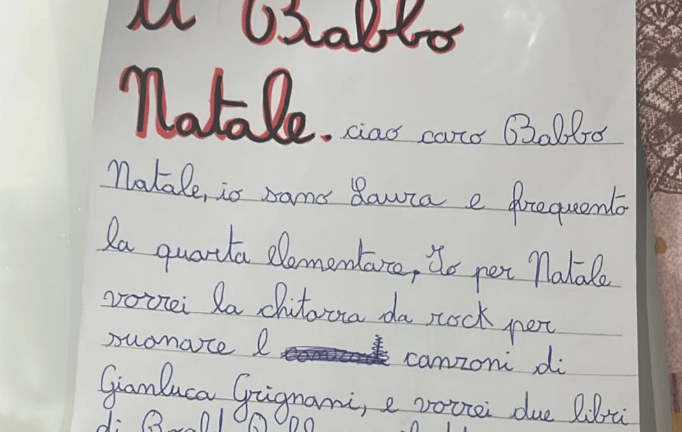 Babbo
Natale. ciao caro Babbo
Natale, io sono Laura e frequento
la quarta elementare, Io per Natale
vorrei la chitarra da rock per
suonare l canzoni di
Gianluca Grignani, e vorrei due libri
di